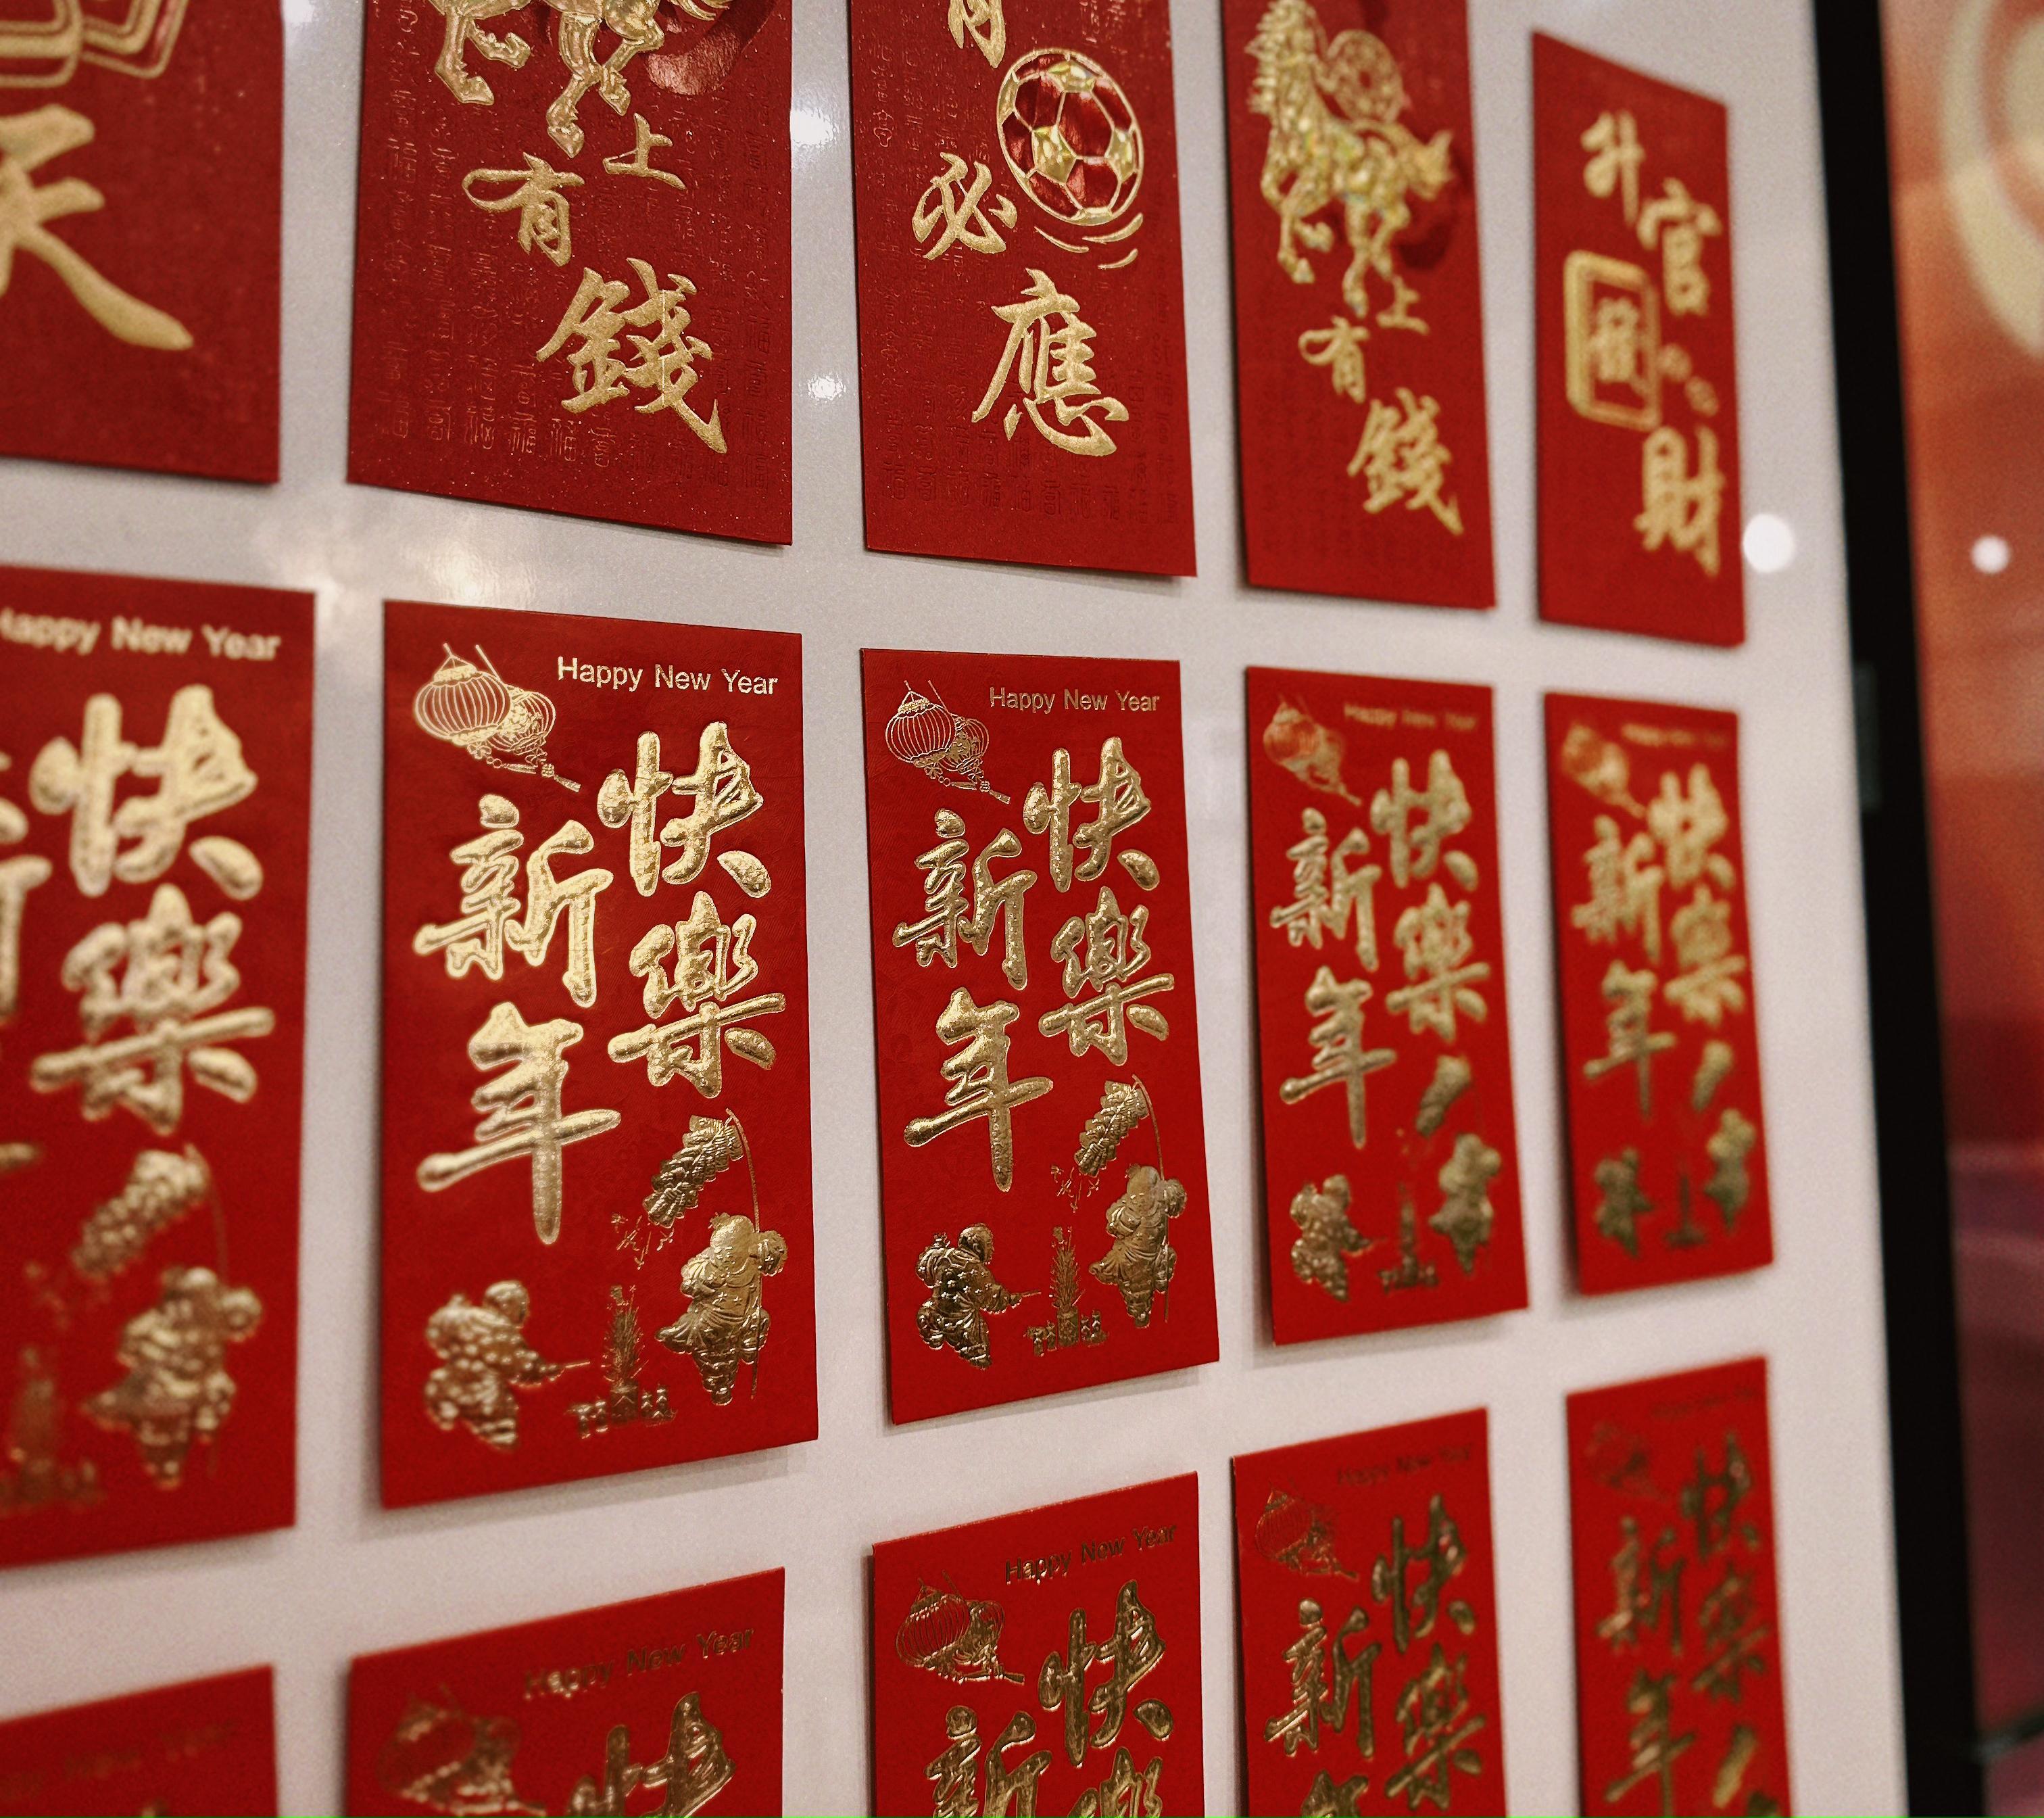 天
上
有
錢
有
必
應
上
有
錢
升
官
發
財
Happy New Year
快
樂
新
Happy New Year
快
樂
新
年
Happy New Year
快
樂
新
年
Happy New Year
快
樂
新
年
Happy New Year
快
樂
新
年
Happy New Year
快
Happy New Year
快
樂
新
Happy New Year
快
樂
新
年
快
樂
新
年